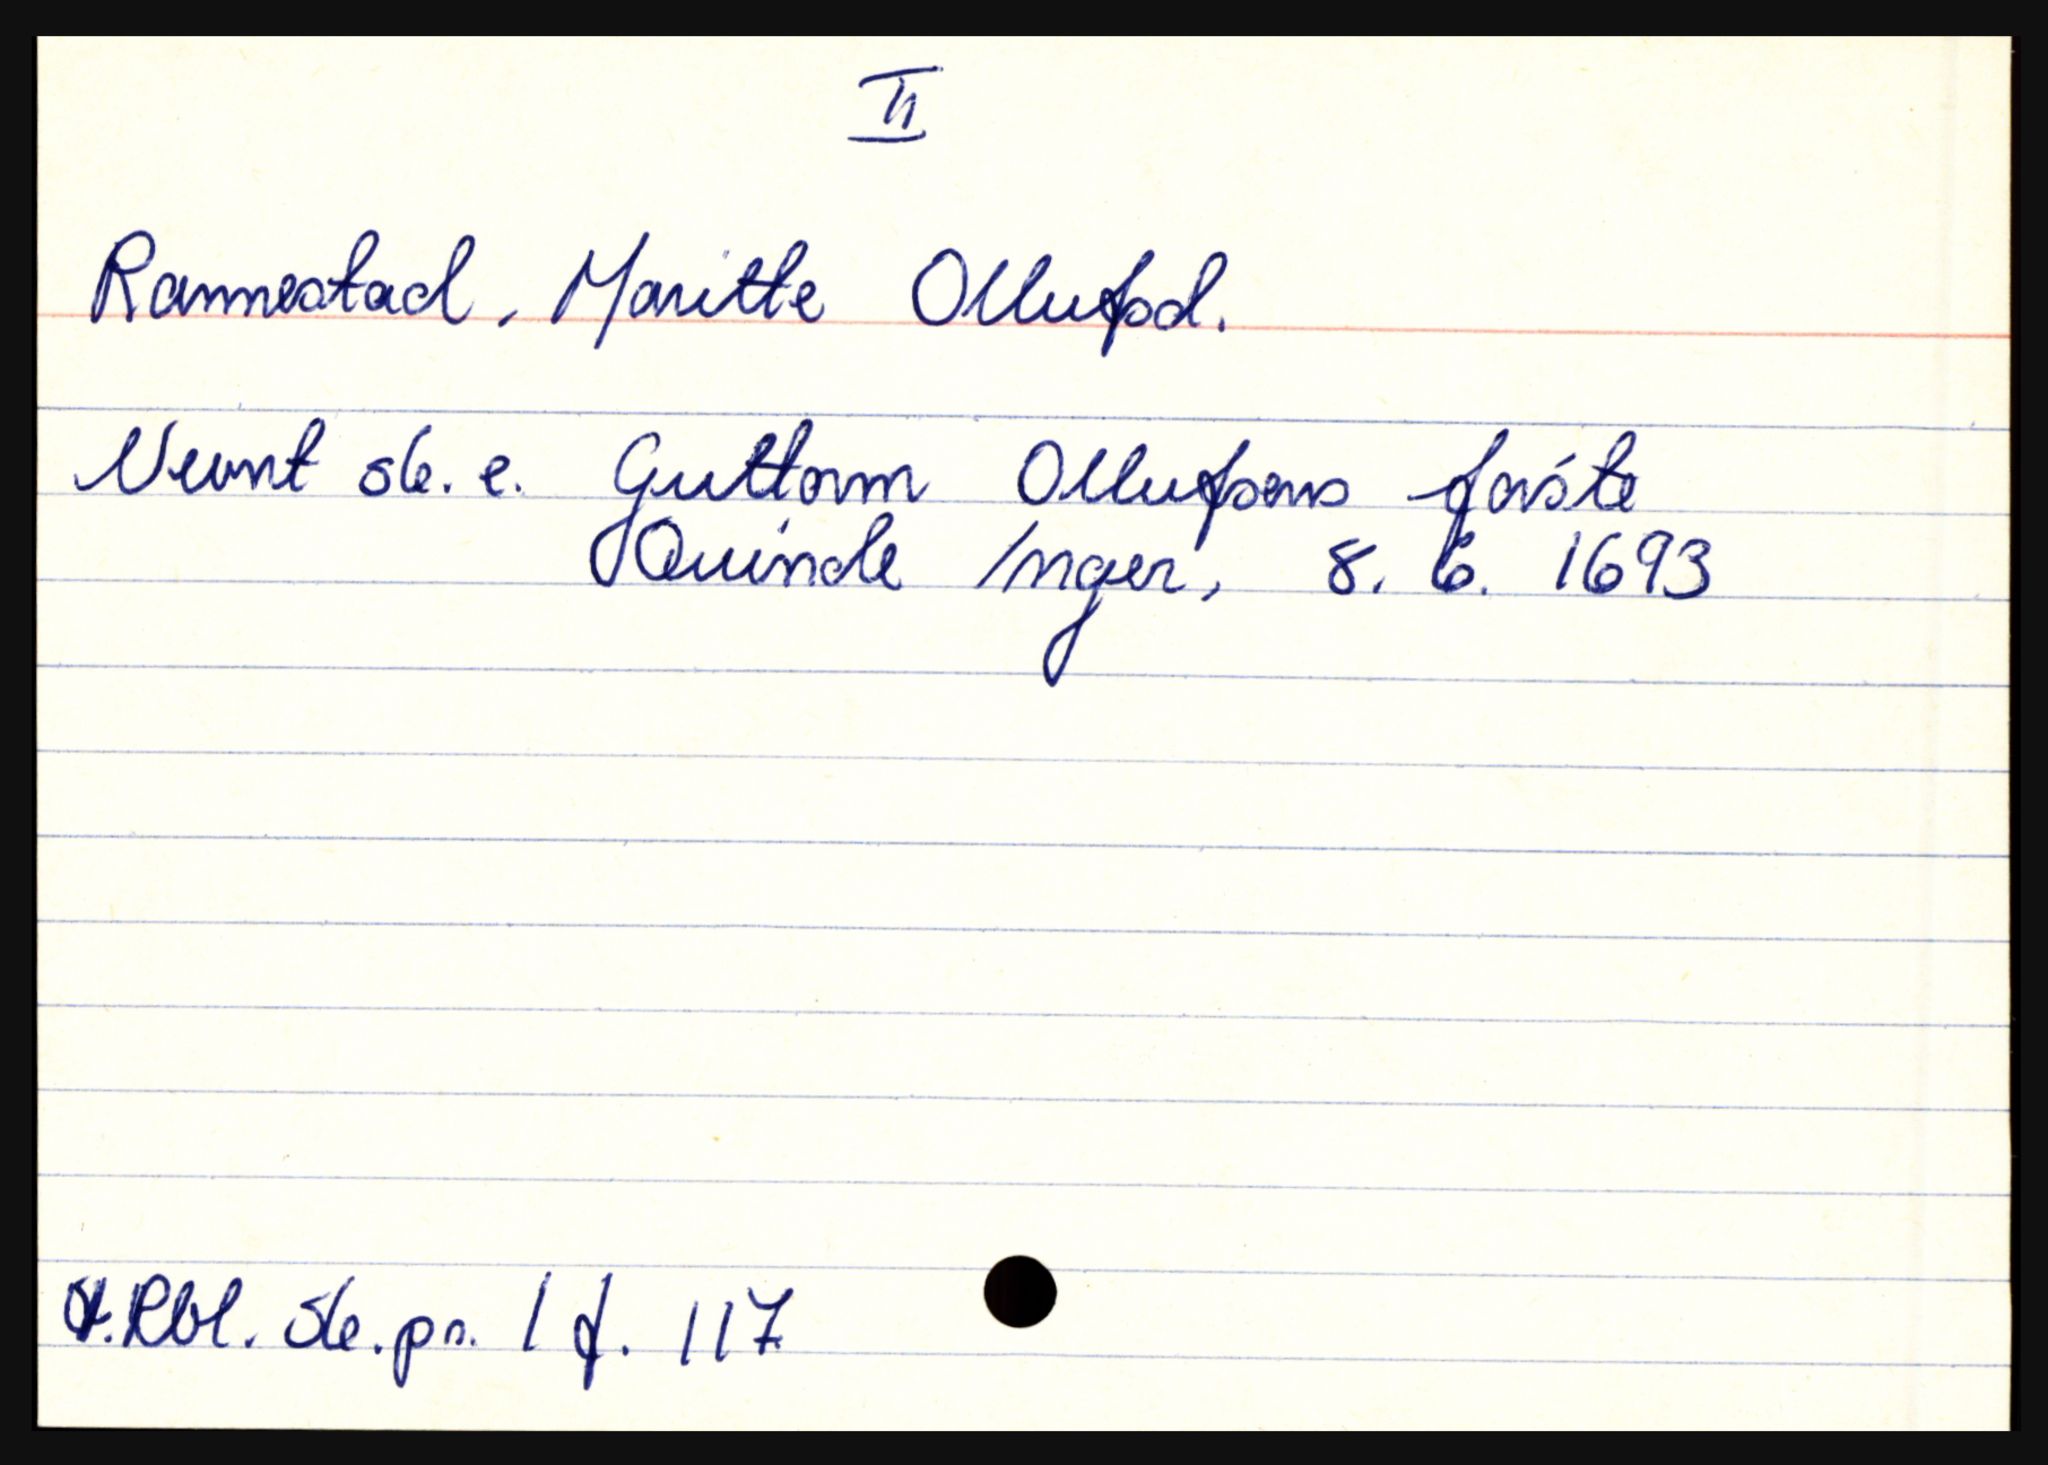 II
Rannestad, Maritte Ollufsd.
Nevnt sk. e. Guttorm Ollufsens første
Quinde Inger, 8. 6. 1693
Rbl. sk.pr. 1 f. 117